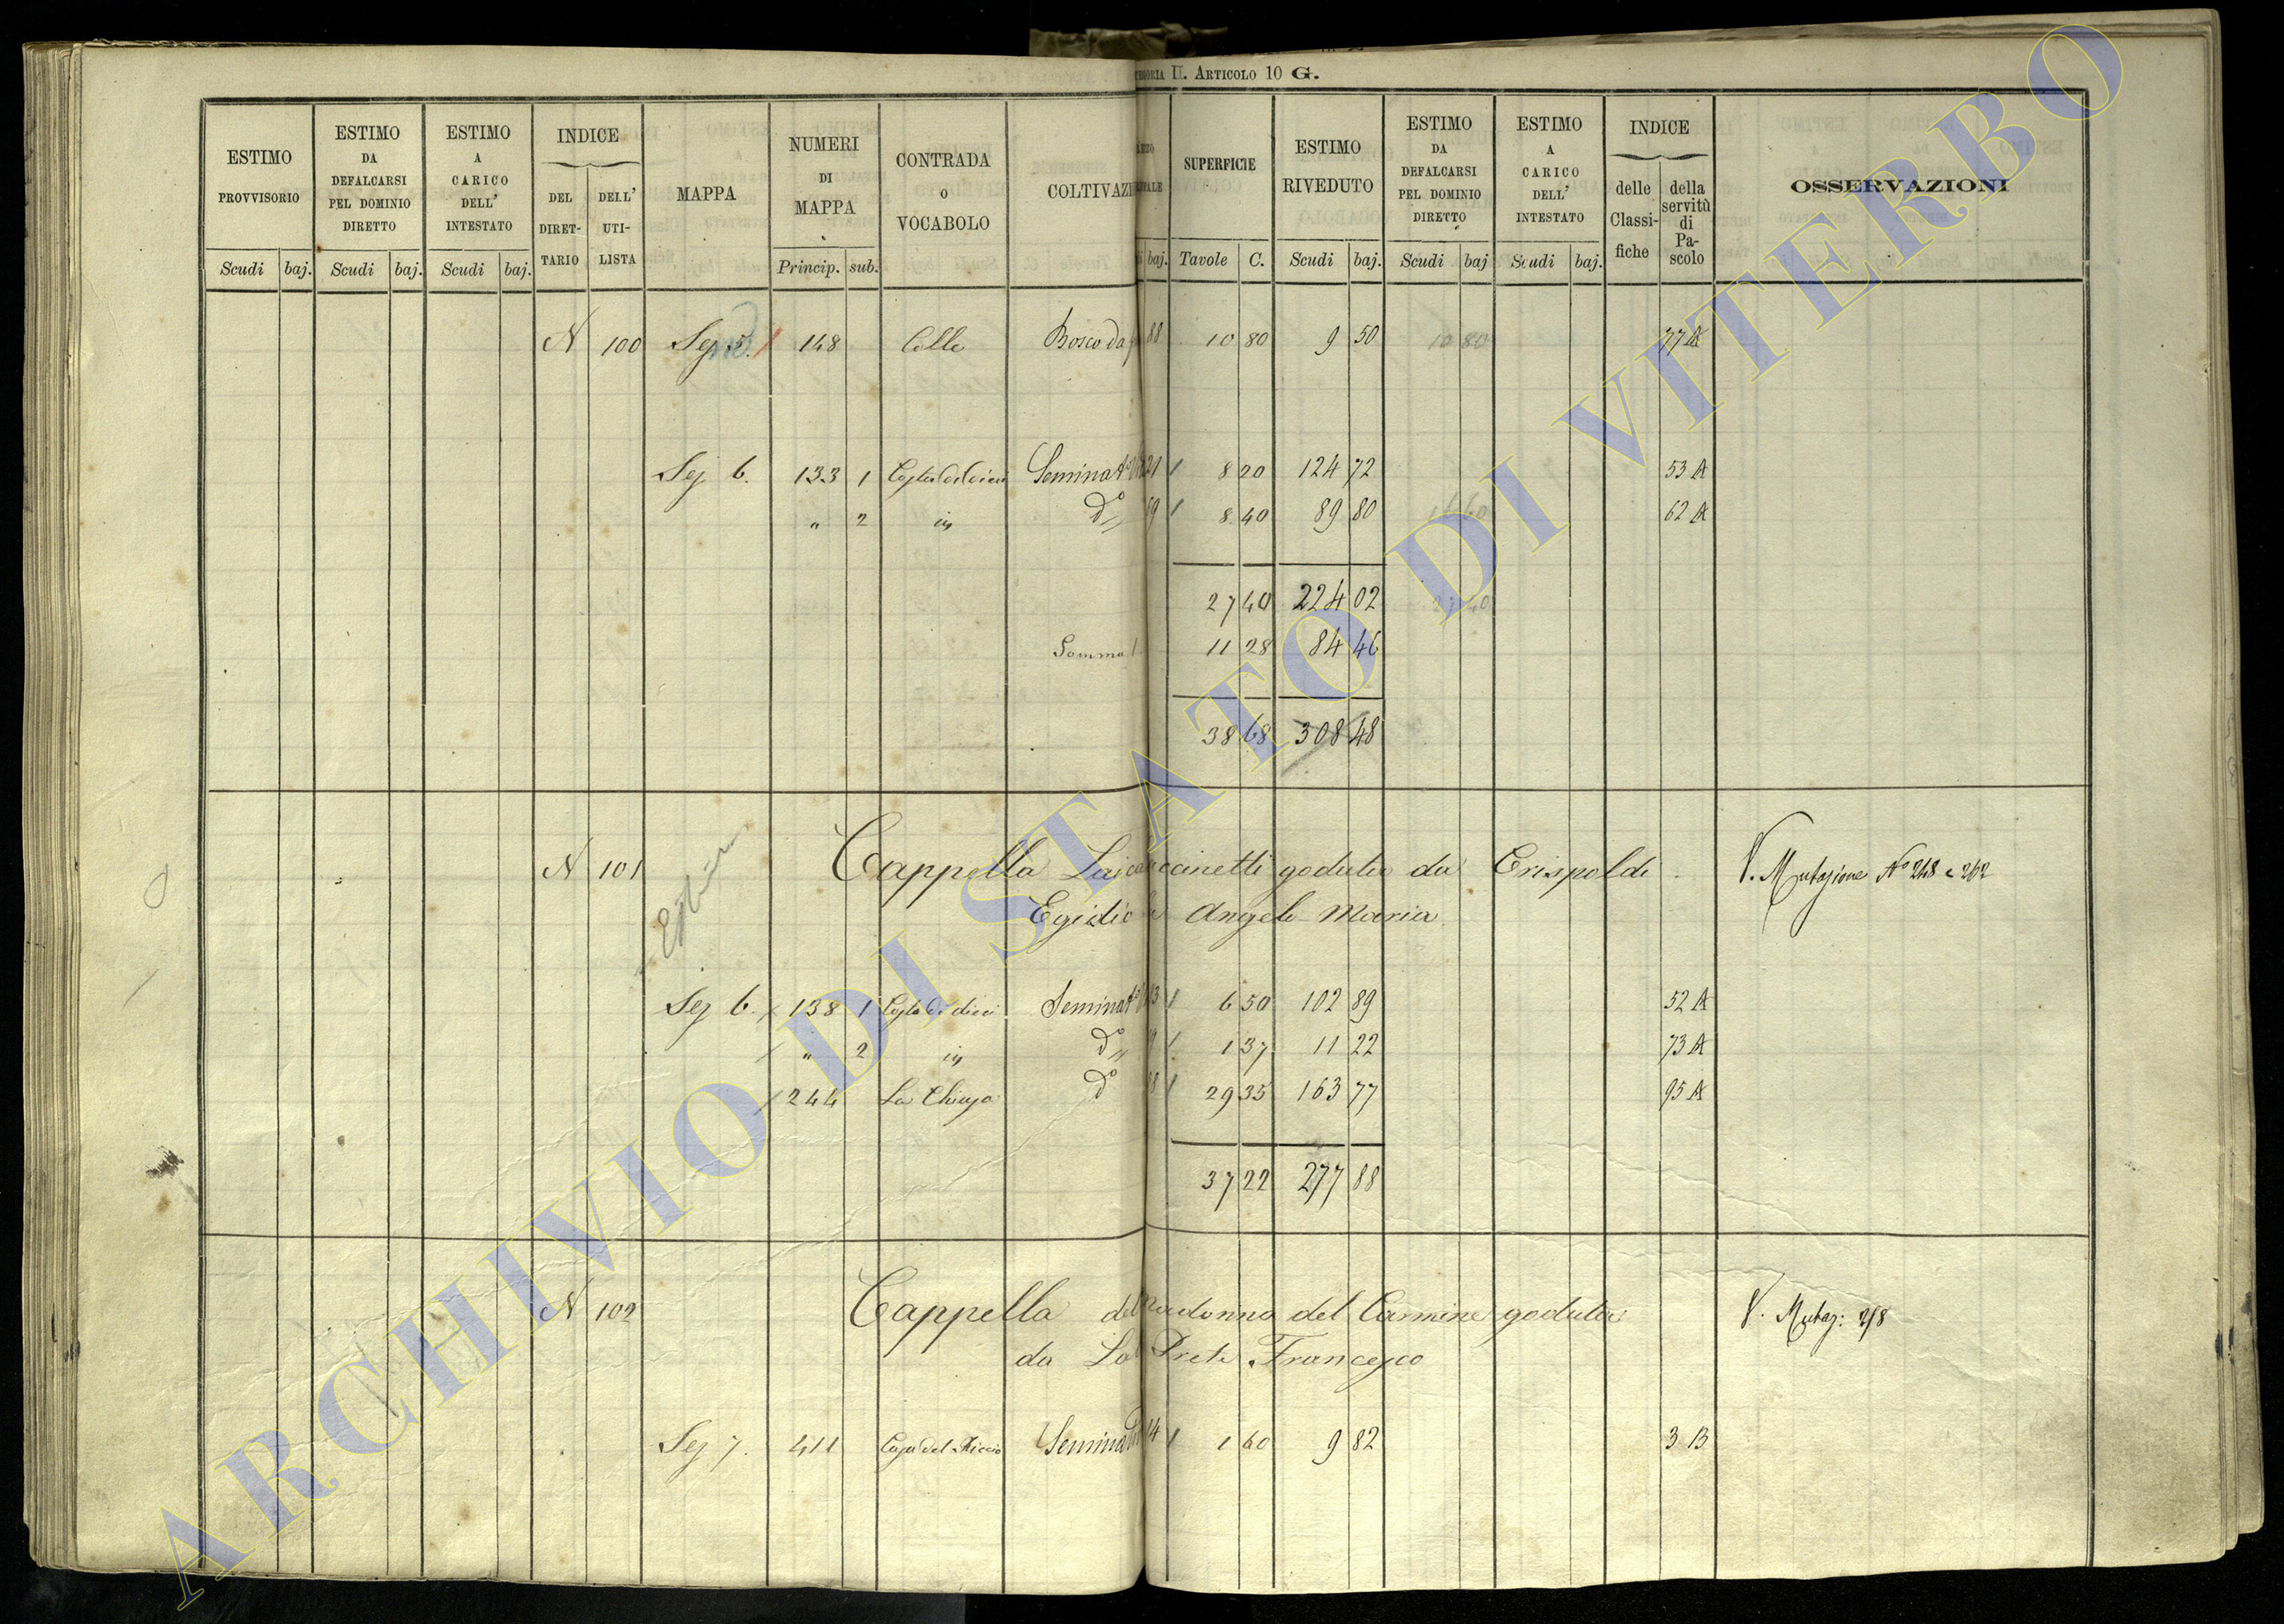 II. ARTICOLO 10 G.
ESTIMO PROVVISORIO
ESTIMO DA DEFALCARSI PEL DOMINIO DIRETTO
ESTIMO A CARICO DELL' INTESTATO
INDICE
DEL DIRETTARIO
DELL' UTILISTA
MAPPA
NUMERI DI MAPPA
CONTRADA O VOCABOLO
COLTIVAZI
SUPERFICIE
ESTIMO RIVEDUTO
ESTIMO DA DEFALCARSI PEL DOMINIO DIRETTO
ESTIMO A CARICO DELL' INTESTATO
INDICE
delle Classifiche
della servitù di Pascolo
OSSERVAZIONI
Scudi baj. Scudi baj. Scudi baj. Princip. sub. baj. Tavole C. Scudi baj. Scudi baj Scudi baj.
N 100 Sez 148 Colle Bosco da 88 10 80 9 50 10 80 77 A
Sez 6. 133 1 Seminat 21 8 20 124 72 53 A
" 2 d° 8 40 89 80 62 A
27 40 224 02
Somma 11 28 84 46
38 68 308 48
N 101 Cappella goduta da Crispoldi V. Mutazione N° 248 e 262
Egidio Angelo Maria
Sez 6. 138 1 Seminat 6 50 102 89 52 A
" 2 d° 1 37 11 22 73 A
244 La Chiusa d° 29 35 163 77 95 A
37 22 277 88
N 102 Cappella Madonna del Carmine goduta V. Mutaz:
da Lo Prete Francesco
Sez 7. 411 Casa del Riccio Seminat 14 1 60 9 82 3 B
ARCHIVIO DI STATO DI VITERBO